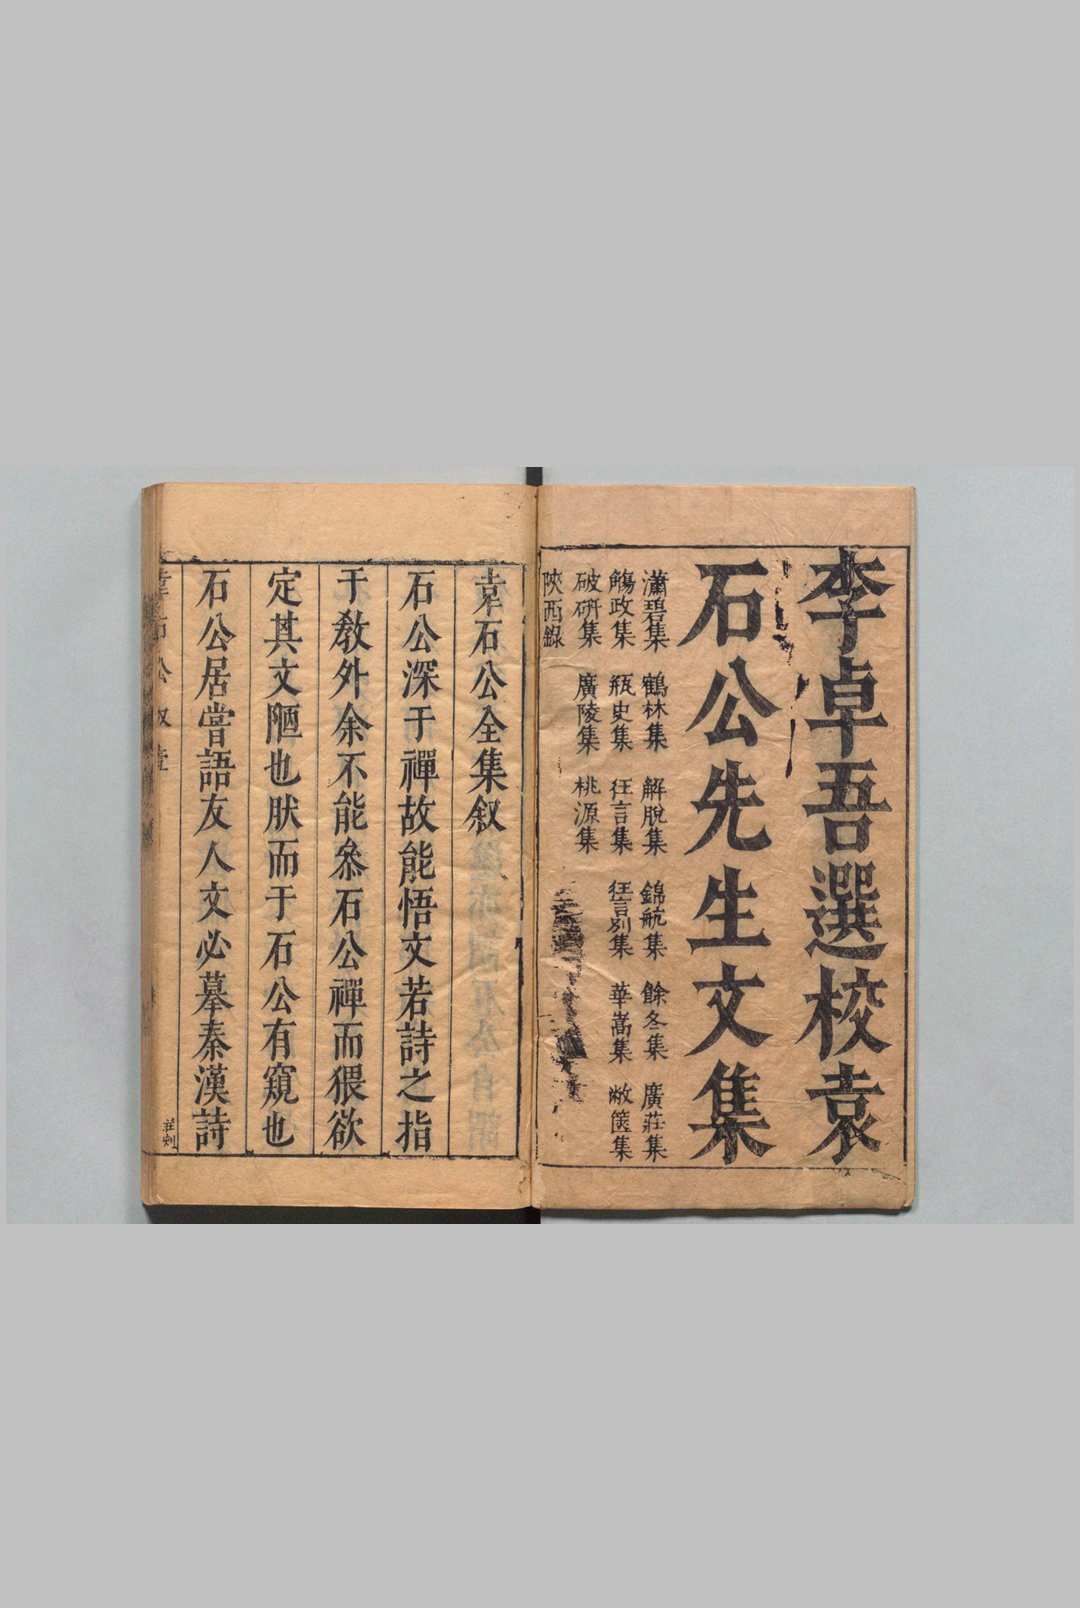 李卓吾選校袁
石公先生文集
瀟碧集 鶴林集 解脫集 錦航集 餘冬集 廣莊集
觴政集 瓶史集 狂言集 狂言別集 華嵩集 敝篋集
破研集 廣陵集 桃源集
陝西錄
袁石公全集叙
石公深于禪故能悟文若詩之指
于敎外余不能叅石公禪而猥欲
定其文陋也肰而于石公有窺也
石公居嘗語友人文必摹秦漢詩